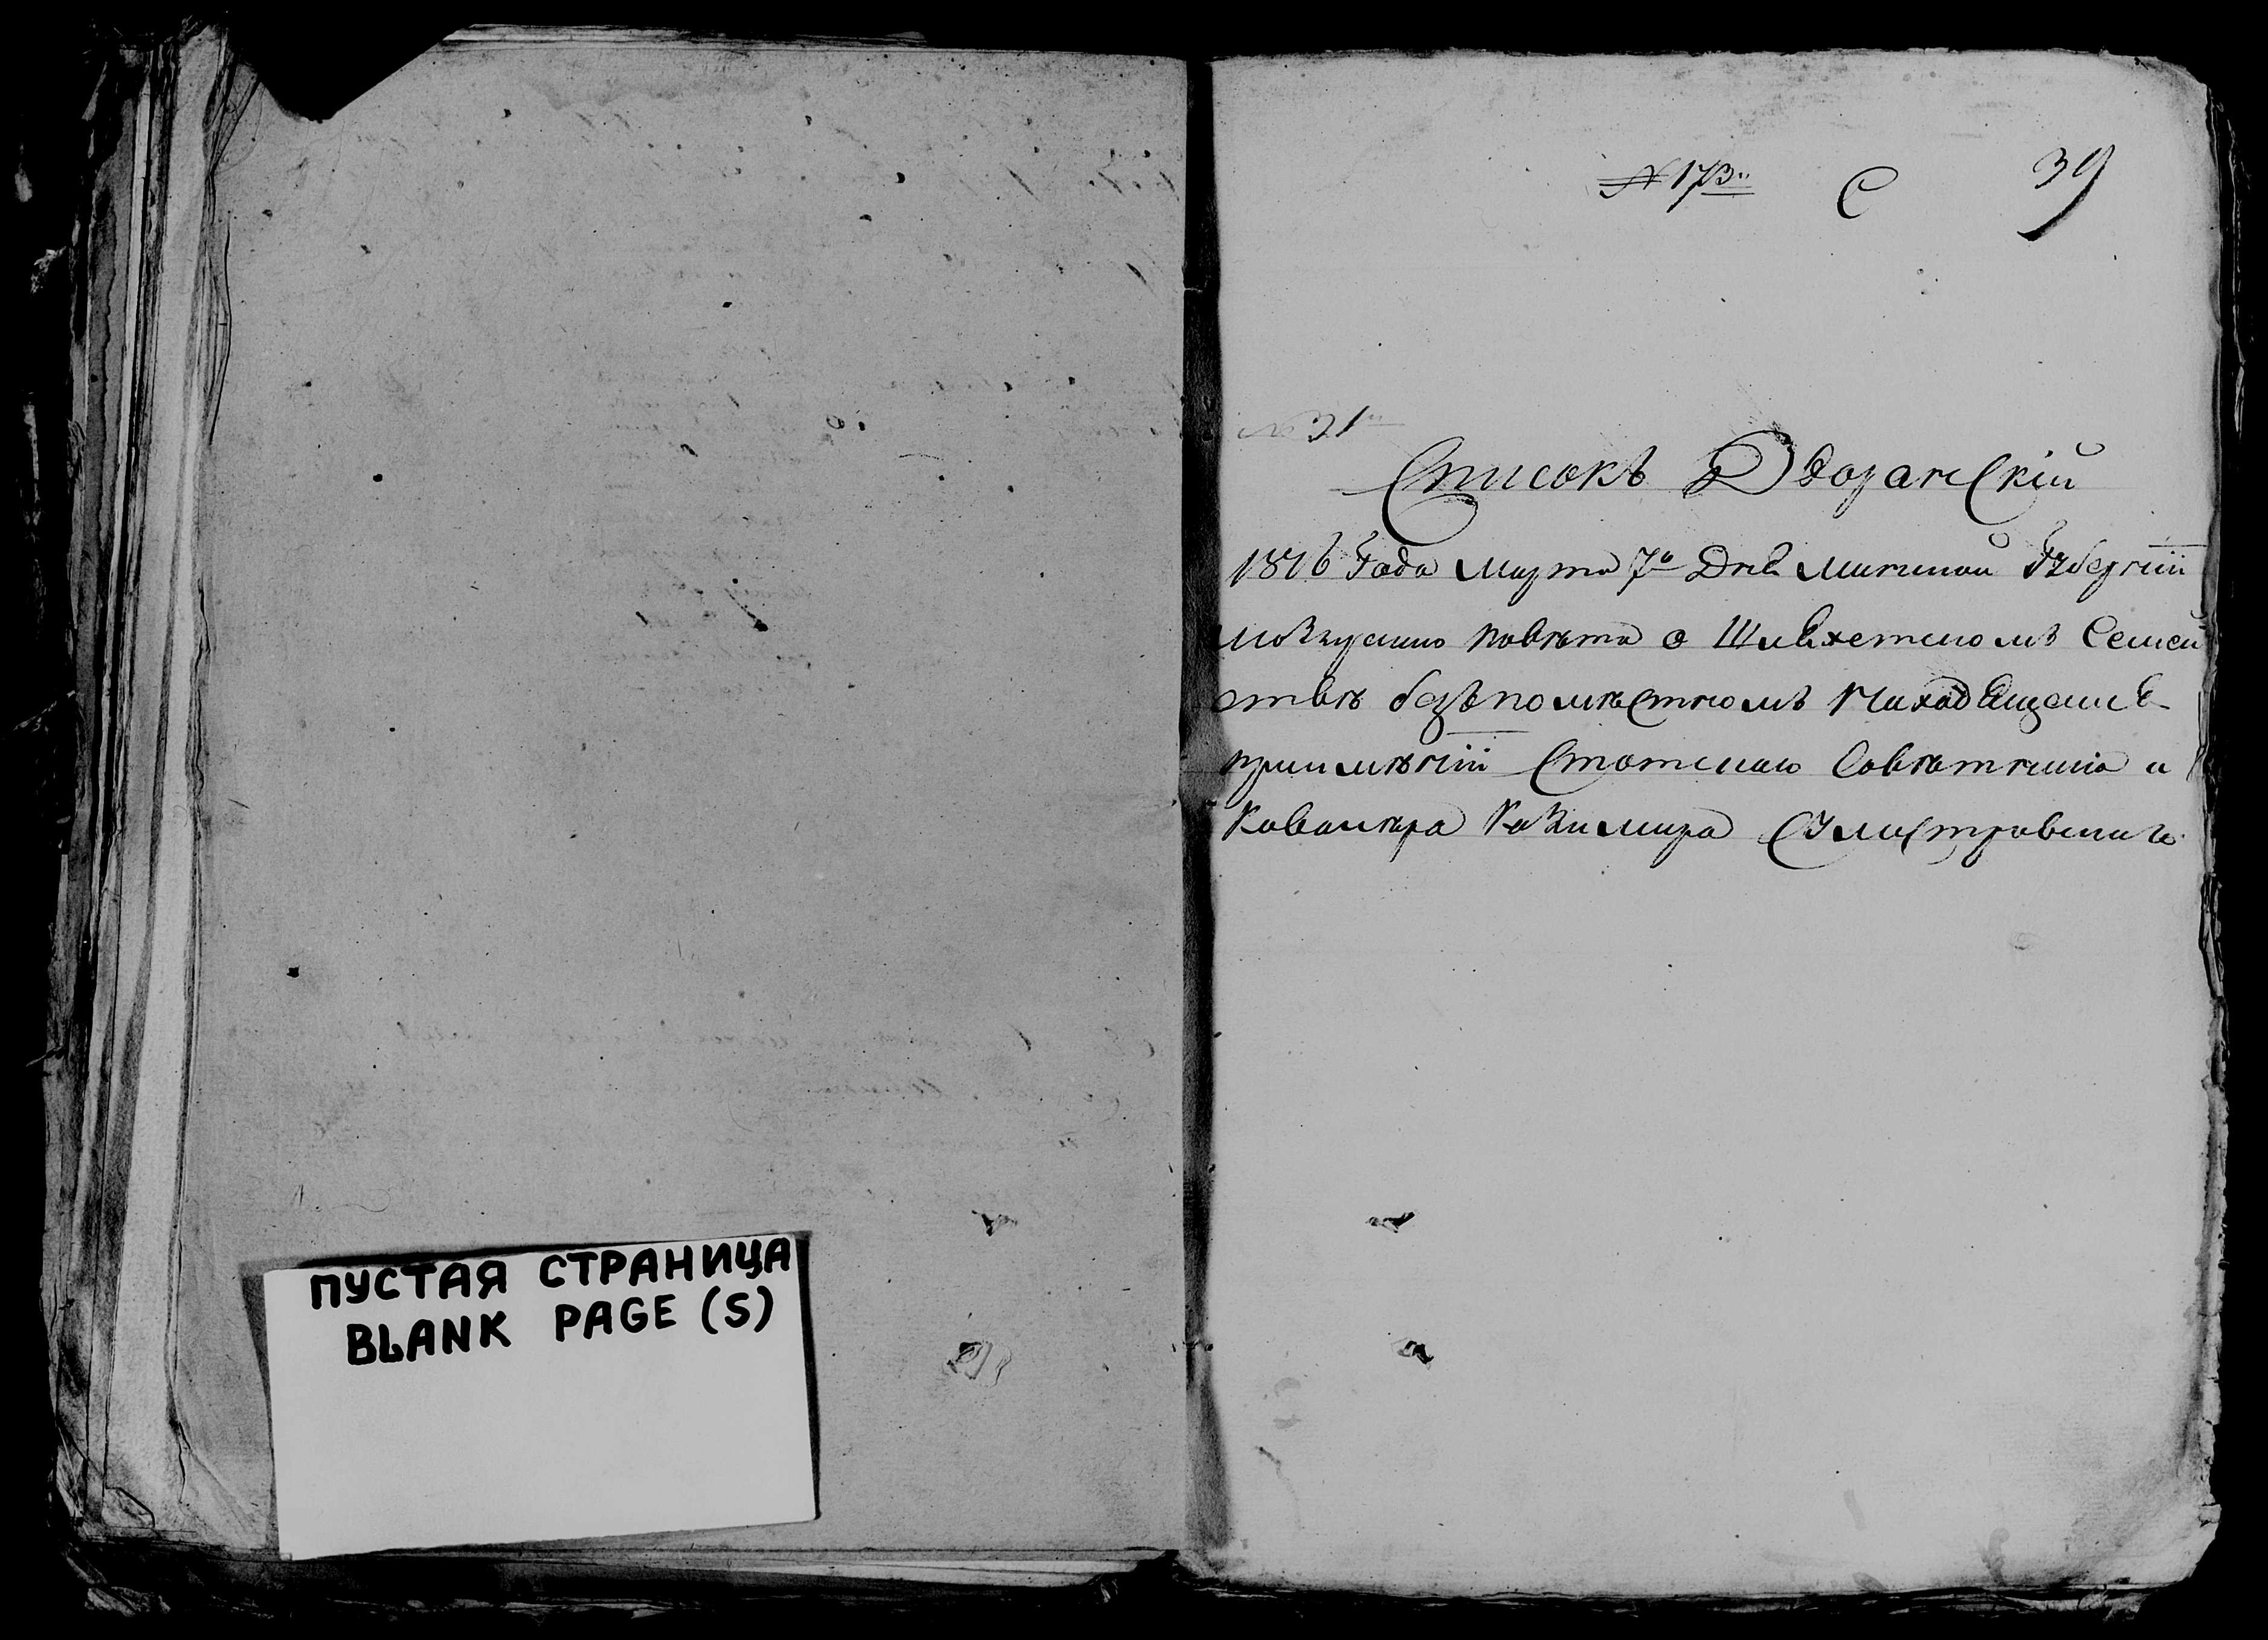 ПУСТАЯ СТРАНИЦА
BLANK PAGE (S)
№ 173
С
39
№ 31
Списокъ Дворанскій
1816 Года Марта 7º Дня Минской Губерніи
Мозырского Повѣта о Шляхетскомъ Семей
ствѣ безъпомѣстномъ Находящемся
при имѣніи Статского Совѣтника и
Кавалѣра Казимира Сулистровскаго